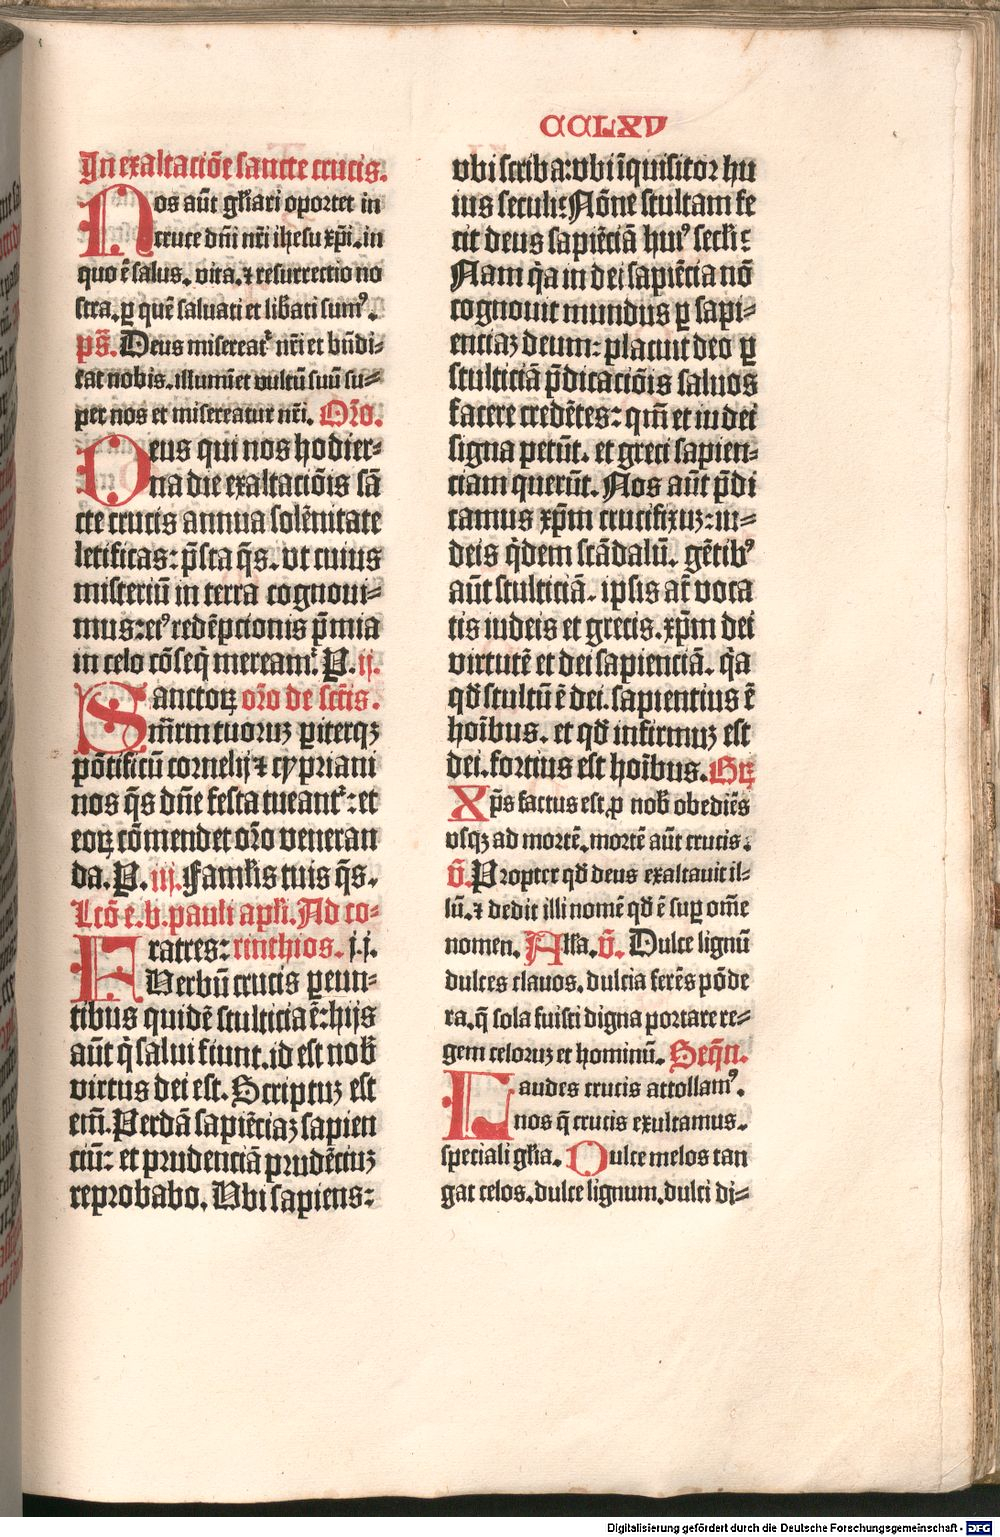 CCLXV
In exaltaciõe sancte crucis.
Nos aũt gl̃iari oportet in
cruce dñi nr̃i ihesu xp̃i. in
quo ẽ salus. vita. ⁊ resurrectio no
stra. ꝑ quẽ saluati et lib̃ati sumꝰ.
ps̃. Deus misereat᷑ nr̃i et bñdi⸗
cat nobis. illumĩet vultũ suũ su⸗
per nos et misereatur nr̃i. Or̃o.
Deus qui nos hodier⸗
na die exaltaciõis sã
cte crucis annua solẽnitate
letificas: p̃sta q̃s. vt cuius
misteriũ in terra cognoui⸗
mus: eiꝰ redẽpcionis p̃mia
in celo cõseq̃ mereamᷣ. P. ij.
Sanctoꝝ or̃o de sct̃is.
m̃rm tuoruꝫ ꝑiterqꝫ
põtificũ cornelij ⁊ cypriani
nos q̃s dñe festa tueantᷣ: et
eoꝝ cõmendet or̃o veneran
da. P. iij. Famĩs tuis q̃s.
Lc̃õ e. b. pauli apl̃i. Ad co⸗
Fratres: rinthios. j. j.
Verbũ crucis peun⸗
tibus quidẽ stulticia ẽ: hijs
aũt q̃ salui fiunt. id est nob̃
virtus dei est. Scriptuꝫ est
em̃. Perdã sapiẽciaꝫ sapien
ciũ: et prudenciã prudẽciuꝫ
reprobabo. Vbi sapiens:
vbi scriba: vbi ĩquisitor hu
ius seculi: Nõne stultam fe
cit deus sapiẽciã huiꝰ secl̃i:
Nam q̃a in dei sapiẽcia nõ
cognouit mundus ꝑ sapi⸗
enciaꝫ deum: placuit deo ꝑ
stulticiã p̃dicaciõis saluos
facere credẽtes: qm̃ et iudei
signa petũt. et greci sapien⸗
ciam querũt. Nos aũt p̃di
camus xp̃m crucifixuꝫ: iu⸗
deis q̃dem scãdalũ. gẽtibꝰ
aũt stulticiã. ipsis at̃ voca
tis iudeis et grecis. xp̃m dei
virtutẽ et dei sapienciã. q̃a
qd̃ stultũ ẽ dei. sapientius ẽ
hoĩbus. et qd̃ infirmuꝫ est
dei. fortius est hoĩbus. Gꝝ
Xp̃s factus est ꝓ nob̃ obediẽs
vsqꝫ ad mortẽ. mortẽ aũt crucis.
v̄. Propter qd̃ deus exaltauit il⸗
lũ. ⁊ dedit illi nomẽ qd̃ ẽ suꝑ om̃e
nomen. All̃a. v̄. Dulce lignũ
dulces clauos. dulcia ferẽs põde
ra. q̃ sola fuisti digna portare re⸗
gem celoruꝫ et hominũ. Seq̃n.
Laudes crucis attollamꝰ.
nos q̃ crucis exultamus.
speciali gl̃ia. Dulce melos tan
gat celos. dulce lignum. dulci di⸗
Digitalisierung gefördert durch die Deutsche Forschungsgemeinschaft - DFG